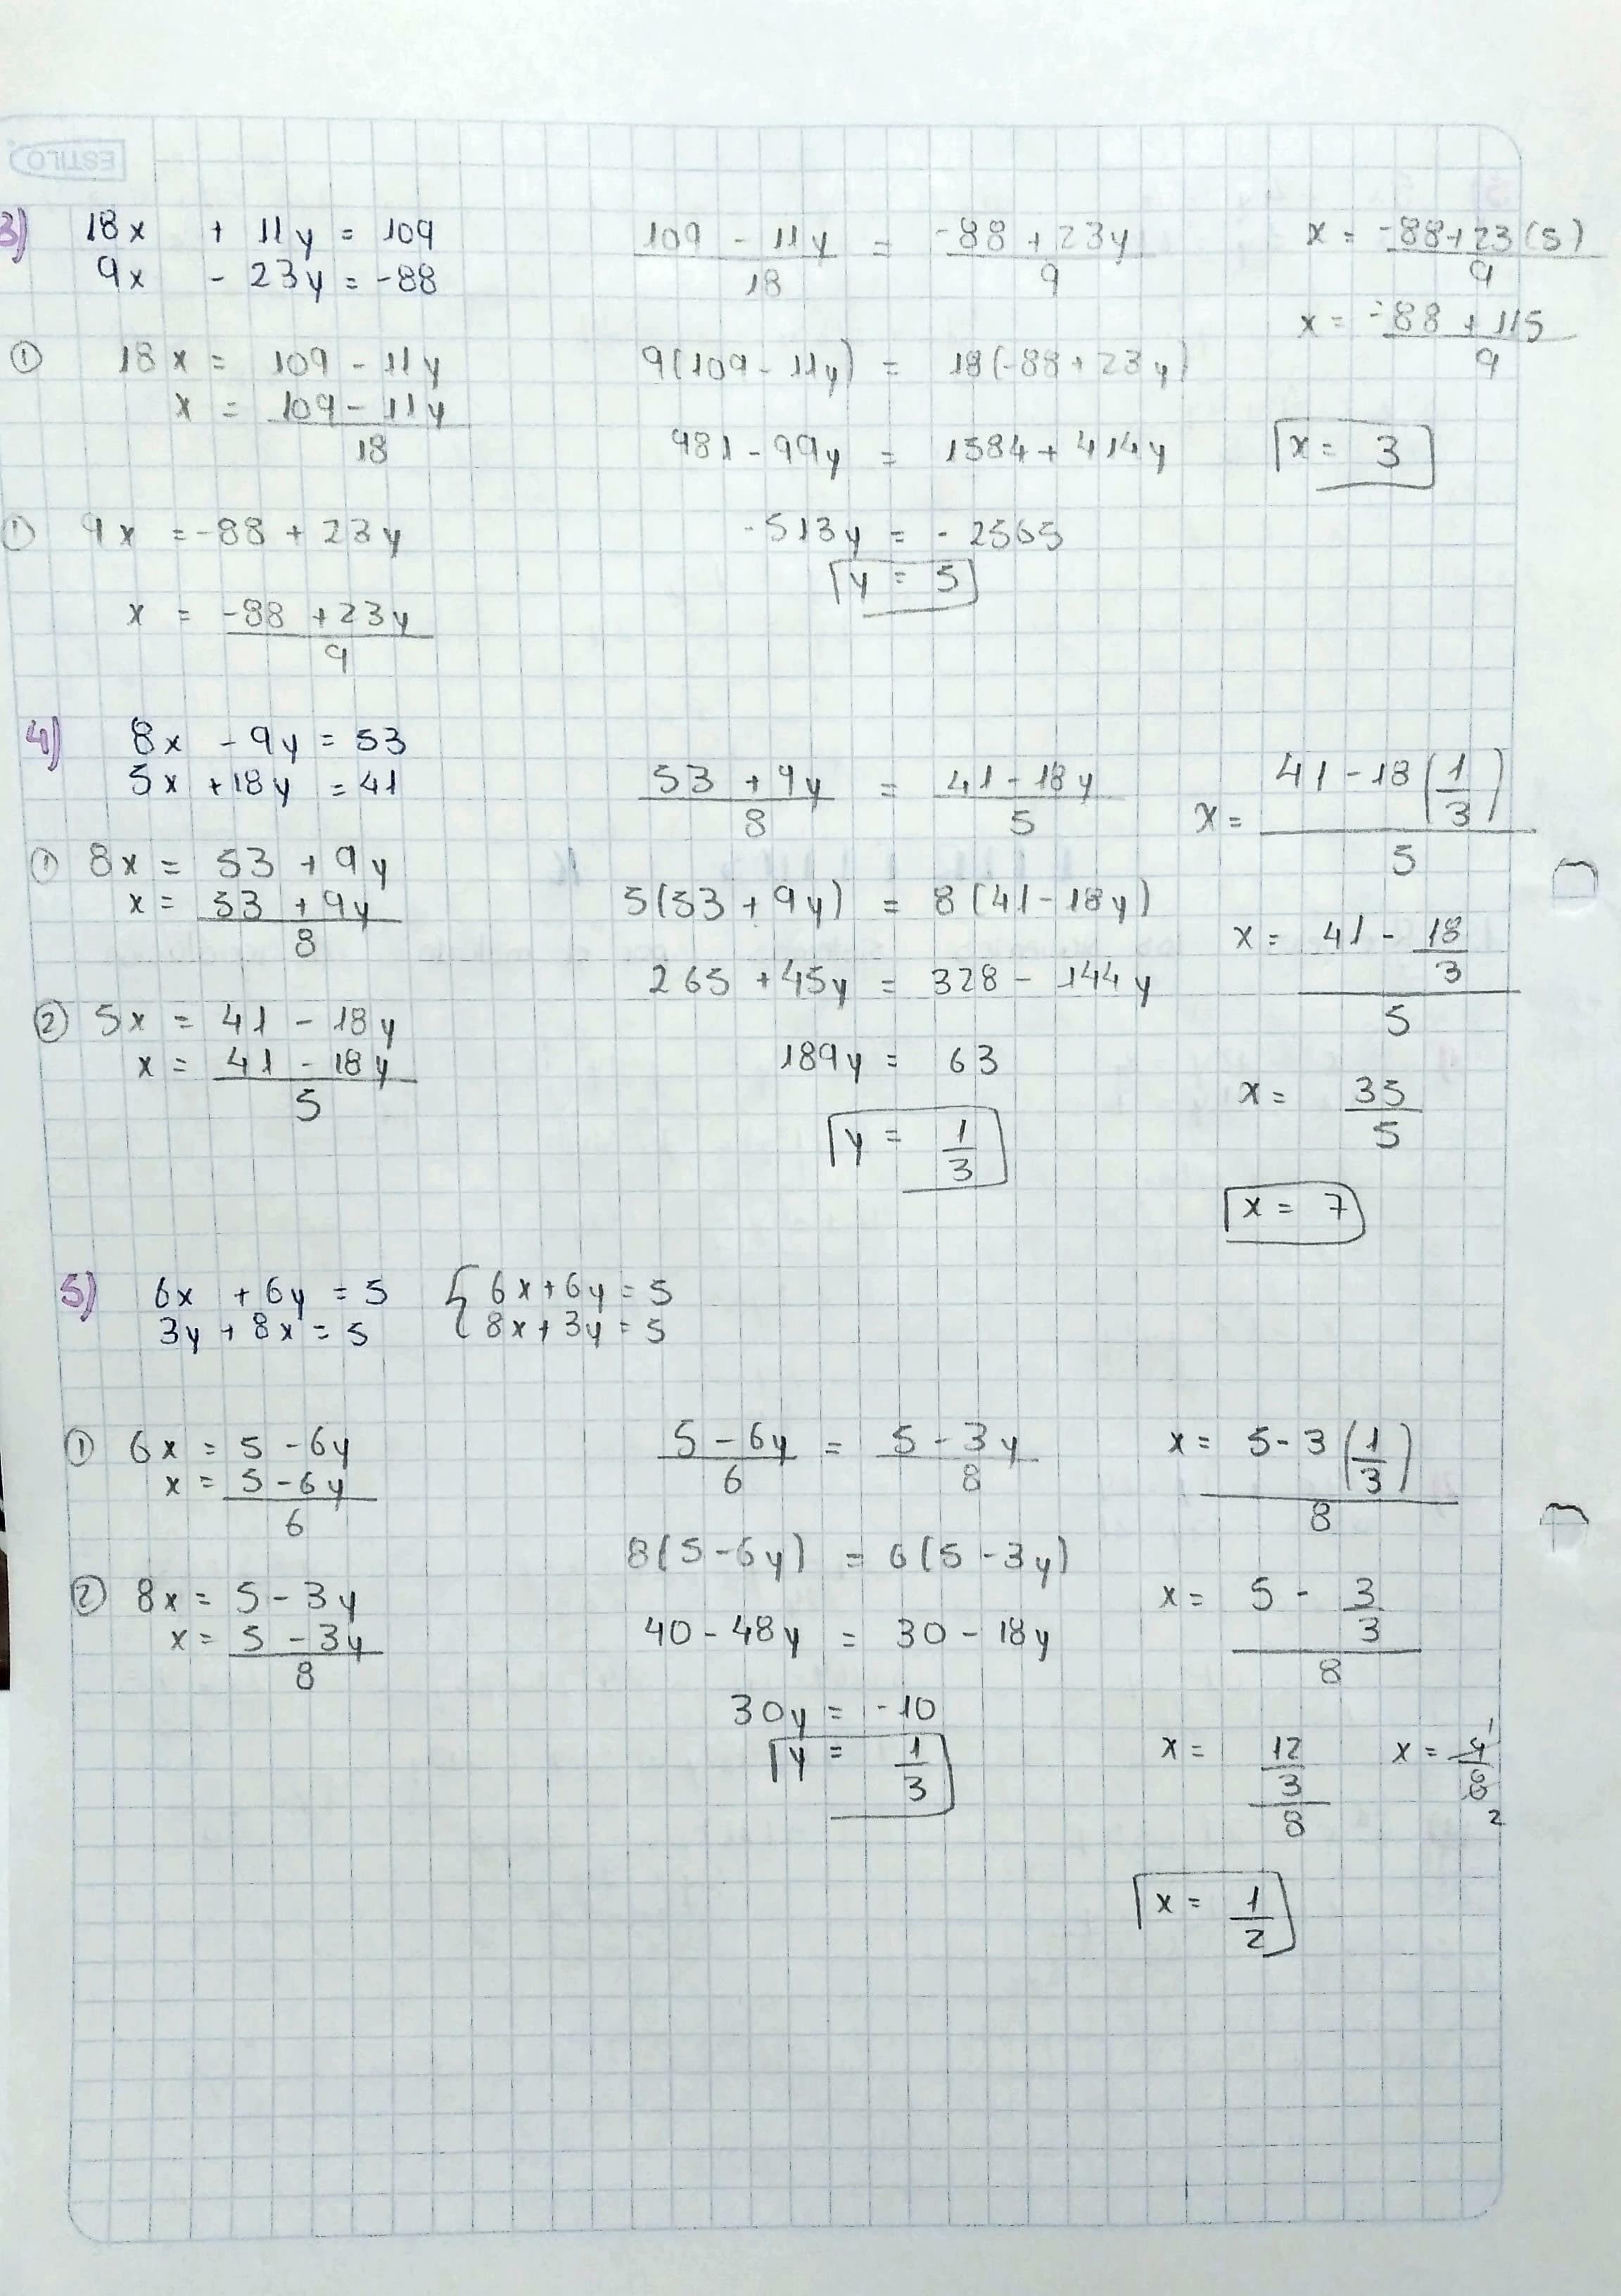 ESTILO
3) 18x + 11y = 109
9x - 23y = -88
① 18x = 109 - 11y
x = 109 - 11y / 18
① 9x = -88 + 23y
x = -88 + 23y / 9
109 - 11y / 18 = -88 + 23y / 9
9(109 - 11y) = 18(-88 + 23y)
981 - 99y = 1584 + 414y
-513y = -2565
y = 5
x = -88 + 23(5) / 9
x = -88 + 115 / 9
x = 3
4) 8x - 9y = 53
5x + 18y = 41
① 8x = 53 + 9y
x = 53 + 9y / 8
② 5x = 41 - 18y
x = 41 - 18y / 5
53 + 9y / 8 = 41 - 18y / 5
5(53 + 9y) = 8(41 - 18y)
265 + 45y = 328 - 144y
189y = 63
y = 1/3
x = 41 - 18(1/3) / 5
x = 41 - 18/3 / 5
x = 35/5
x = 7
5) 6x + 6y = 5 { 6x + 6y = 5
3y + 8x = 5 8x + 3y = 5
① 6x = 5 - 6y
x = 5 - 6y / 6
② 8x = 5 - 3y
x = 5 - 3y / 8
5 - 6y / 6 = 5 - 3y / 8
8(5 - 6y) = 6(5 - 3y)
40 - 48y = 30 - 18y
30y = -10
y = 1/3
x = 5 - 3(1/3) / 8
x = 5 - 3/3 / 8
x = 12/3 / 8 x = 4/8 1 2
x = 1/2